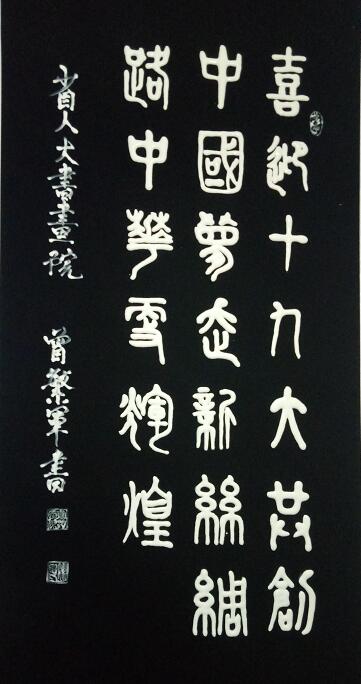 喜迎十九大共創
中國夢走新絲綢
路中華更輝煌
省人大書畫院 曾繁軍書